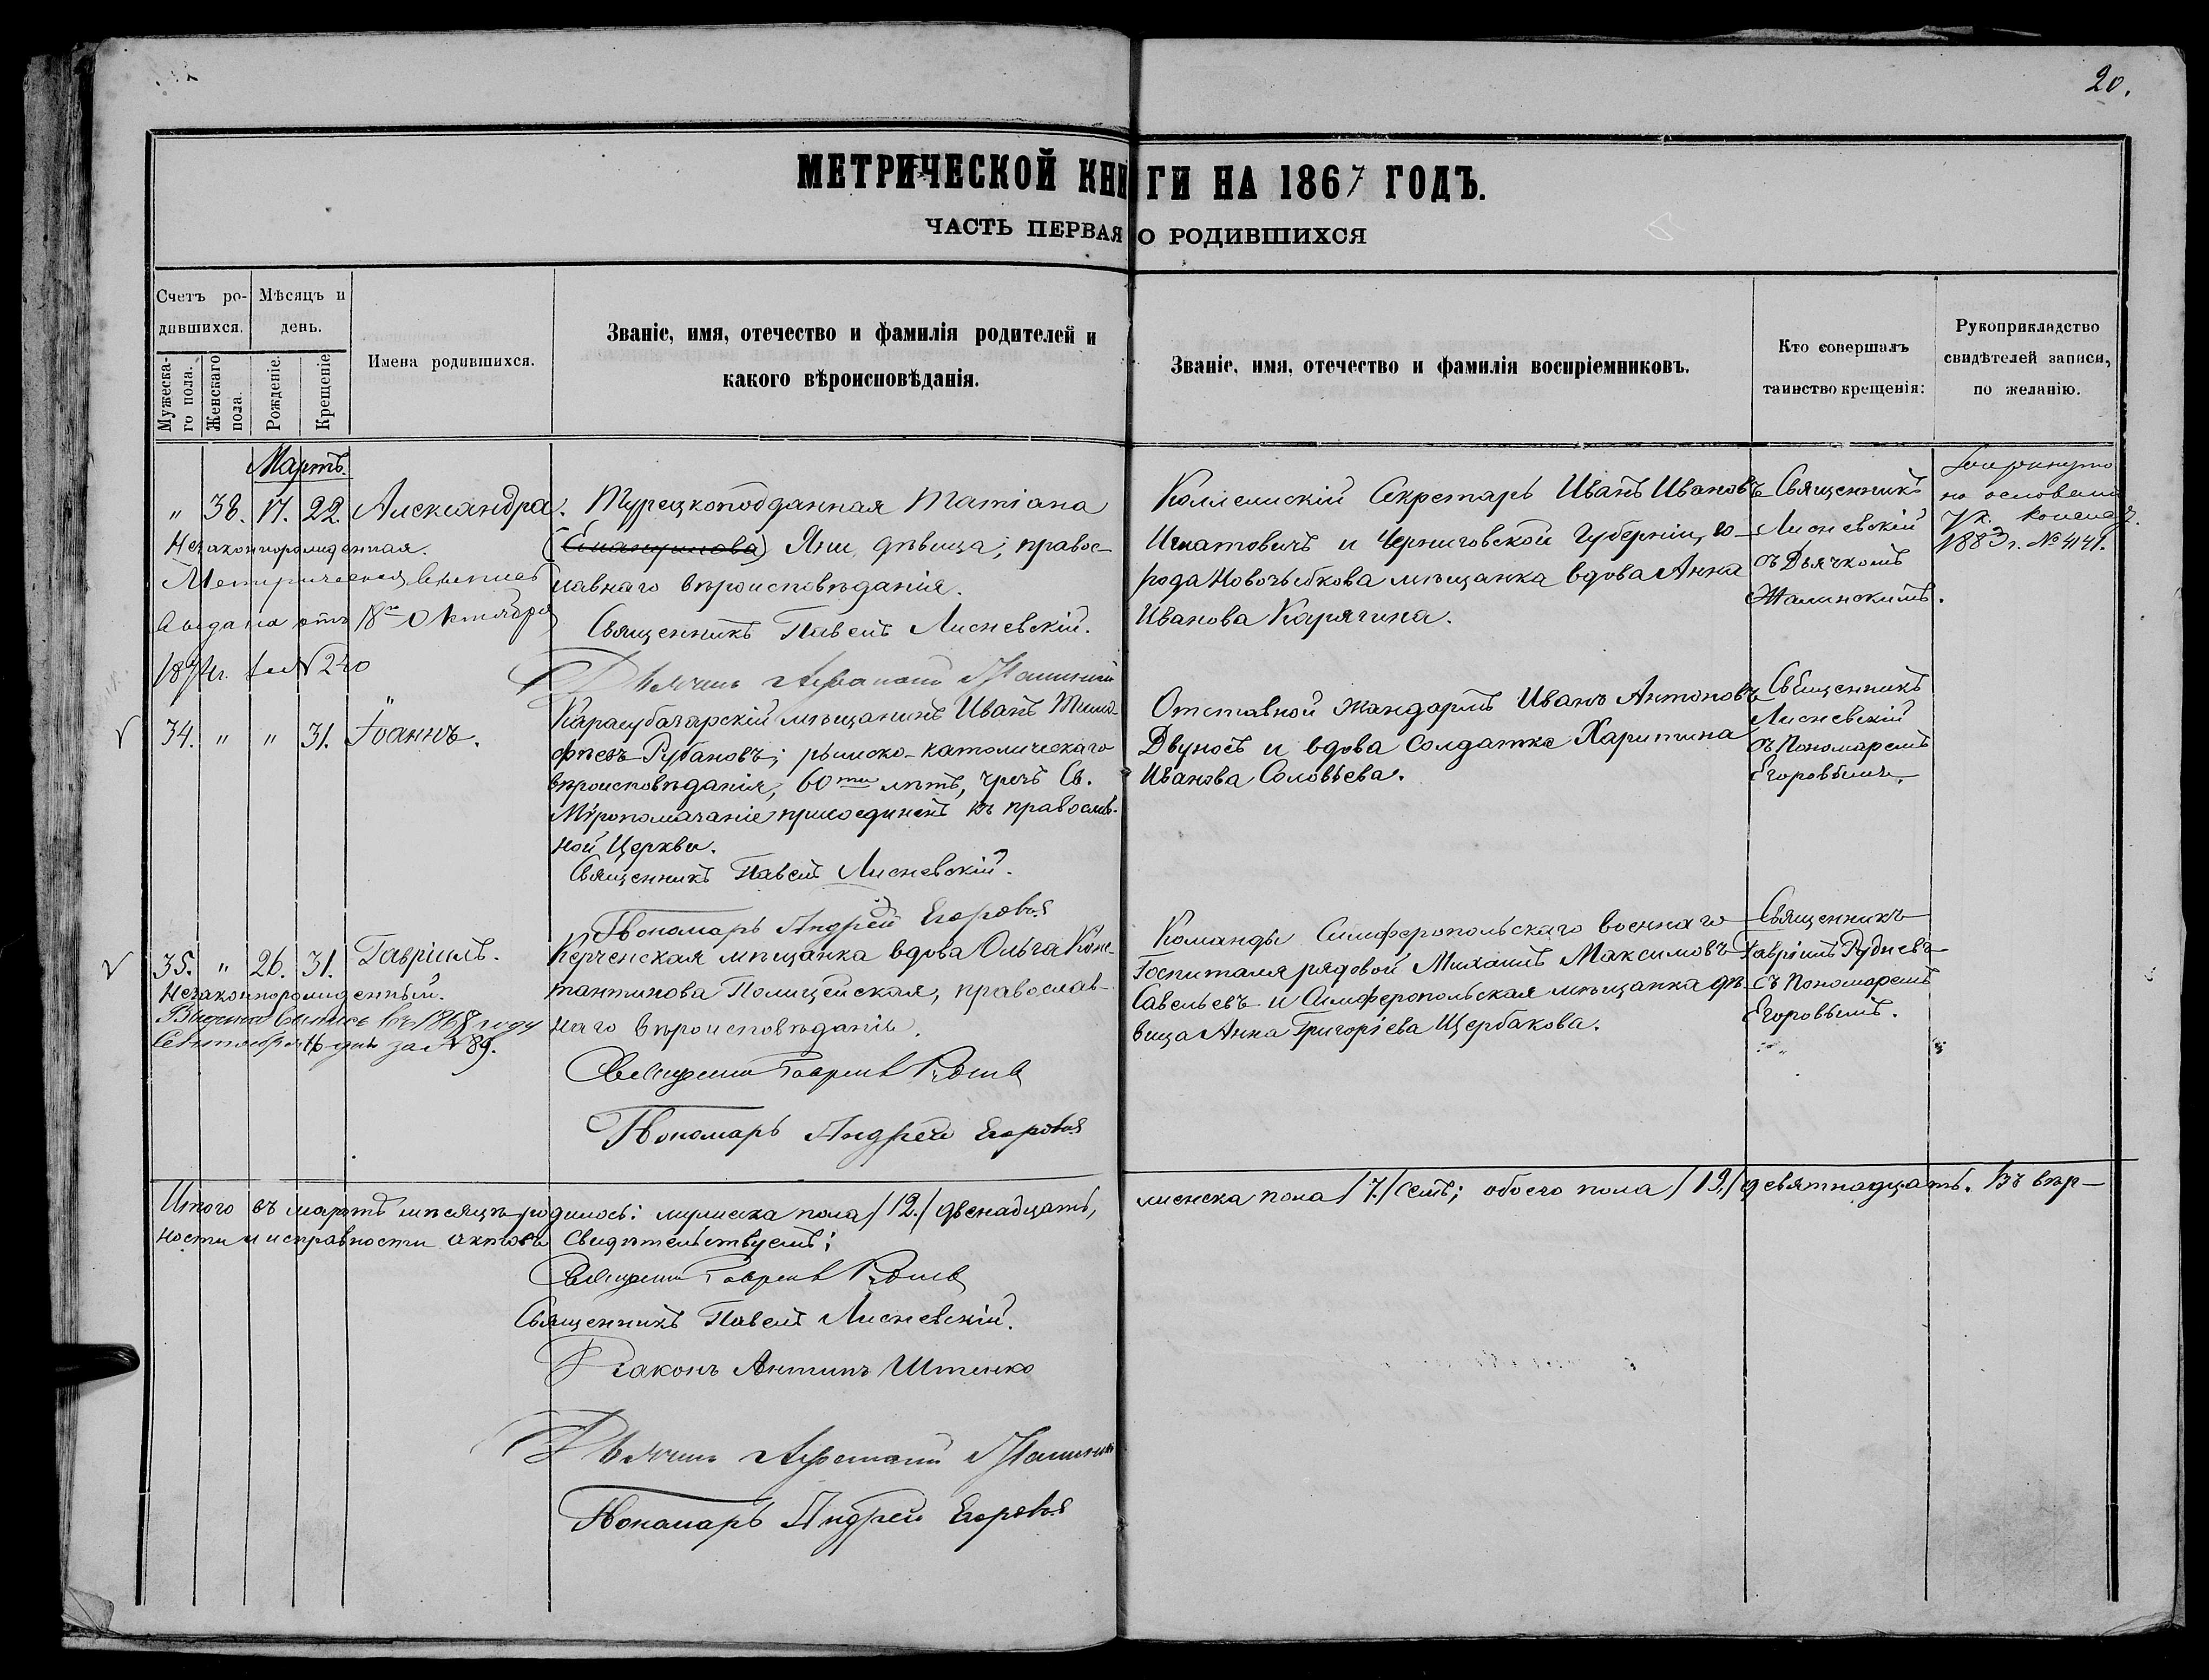 20.
МЕТРИЧЕСКОЙ КНИГИ НА 1867 ГОДЪ.
ЧАСТЬ ПЕРВАЯ О РОДИВШИХСЯ
Счетъ родившихся.
Мужескаго пола.
Женскаго пола.
Мѣсяцъ и день.
Рожденіе.
Крещеніе
Имена родившихся.
Званіе, имя, отечество и фамилія родителей и
какого вѣроисповѣданія.
Званіе, имя, отечество и фамилія воспріемниковъ.
Кто совершалъ
таинство крещенія:
Рукоприкладство
свидѣтелей записи,
по желанію.
Мартъ.
" 38. 17. 22. Александра.
Незаконнорожденная.
Метрическая выпись
выдана отъ 18го Октября
1874г. за № 240
Турецкоподданная Татіана
(Емануилова) Яни, дѣвица; правос-
лавнаго вѣроисповѣданія.
Священникъ Павелъ Лисневскій.
Коллежскій Секретарь Иванъ Ивановъ
Игнатовичъ и Черниговской Губерніи, го-
рода Новозыбкова мѣщанка вдова Анна
Иванова Карягина.
Священникъ
Лисневскій
съ Дьячкомъ
Жалинскимъ.
Зачеркнуто
на основаніи
Ук. Консист.
1883г. № 4141.
34. " " 31. Іоаннъ.
Карасубазарскій мѣщанинъ Иванъ Тимо-
фѣевъ Рубановъ; римско-католическаго
вѣроисповѣданія, 60ти лѣтъ, чрезъ Св.
Мѵропомазаніе присоединенъ къ православ-
ной Церкви.
Священникъ Павелъ Лисневскій.
Пономарь Андрей Егоровъ
Отставной жандармъ Иванъ Антоновъ
Двуносъ и вдова солдатка Харитина
Иванова Соловьева.
Священникъ
Лисневскій
съ Пономаремъ
Егоровымъ.
35. " 26. 31. Гавріилъ.
Незаконнорожденный.
Выдана выпись въ 1868 году
Сентября 16 дня за № 89.
Керченская мѣщанка вдова Ольга Конс-
тантинова Полицейская, православ-
наго вѣроисповѣданія.
Священникъ Гавріилъ Рудневъ
Пономарь Андрей Егоровъ
Команды Симферопольскаго военнаго
Госпиталя рядовой Михаилъ Максимовъ
Савельевъ и Симферопольская мѣщанка дѣ-
вица Анна Григоріева Щербакова.
Священникъ
Гавріилъ Рудневъ
съ Пономаремъ
Егоровымъ.
Итого въ мартѣ мѣсяцѣ родилось: мужеска пола /12./ двенадцать, женска пола /7./ семь; обоего пола /19./ девятнадцать. Въ вѣр-
ности и исправности актовъ свидѣтельствуемъ:
Священникъ Гавріилъ Рудневъ
Священникъ Павелъ Лисневскій.
Діаконъ Антипъ Штенко
Пономарь Андрей Егоровъ